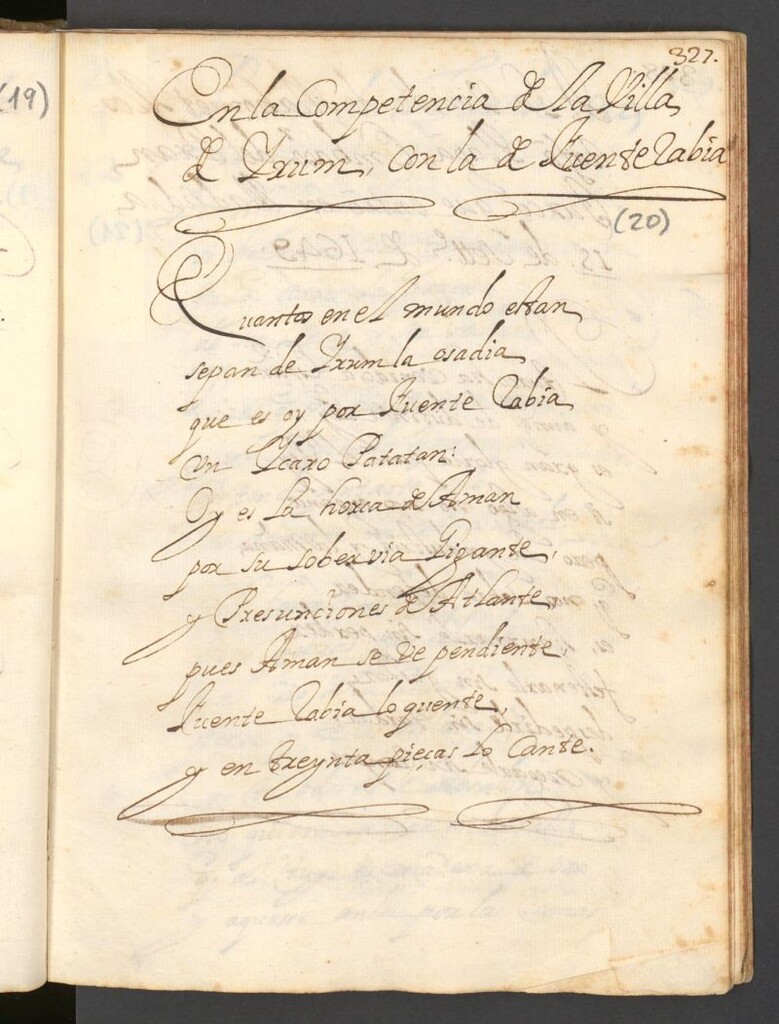 (19)
327.
En la Competencia de la Villa
de Yrum, con la de Fuente Rabia
(20)
Quantos en el mundo estan
sepan de Yrum la osadia
que es oy por Fuente Rabia
Un Ycaro Patatan:
Oy es la horca de Aman
por su sobervia Gigante,
y Presunciones de Atlante,
pues Aman se ve pendiente,
Fuente Rabia lo quente,
y en treynta pieças lo Cante.